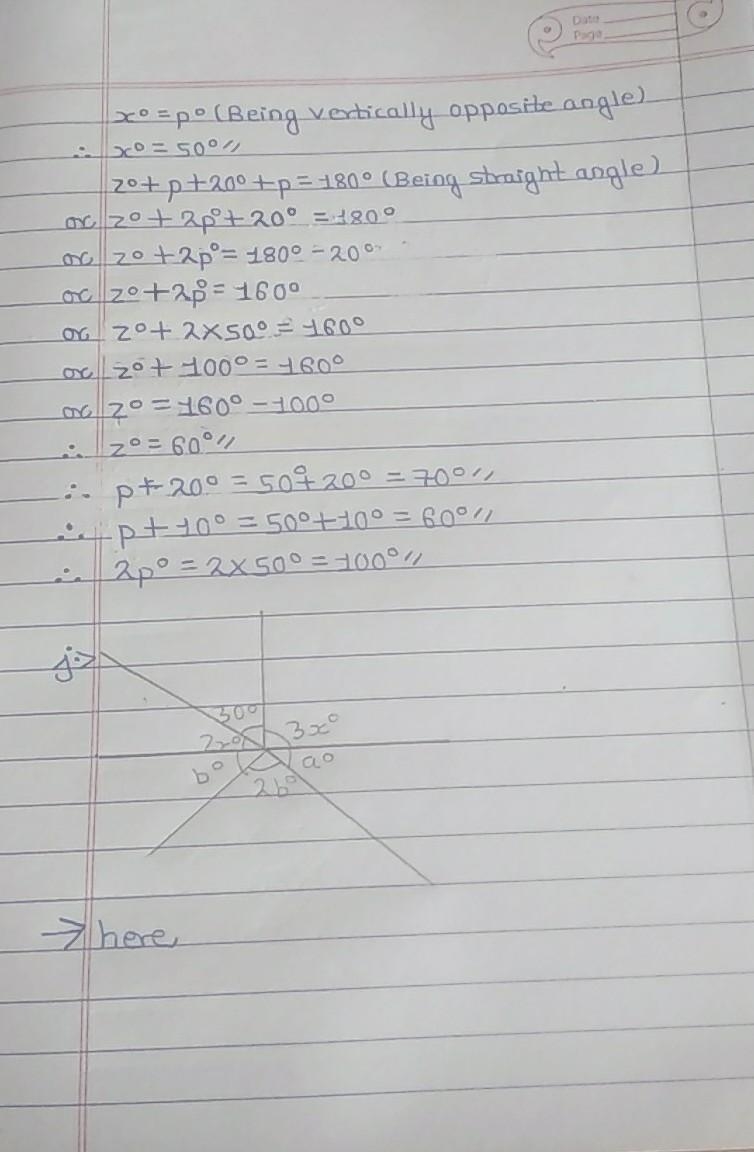 Date
Page
x° = p° (Being vertically opposite angle)
∴ x° = 50°//
z° + p + 20° + p = 180° (Being straight angle)
or z° + 2p° + 20° = 180°
or z° + 2p° = 180° - 20°
or z° + 2p° = 160°
or z° + 2×50° = 160°
or z° + 100° = 160°
or z° = 160° - 100°
∴ z° = 60°//
∴ p + 20° = 50° + 20° = 70°//
∴ p + 10° = 50° + 10° = 60°//
∴ 2p° = 2×50° = 100°//
j.>
30°
3x°
2x°
b°
a°
2b°
→ here,